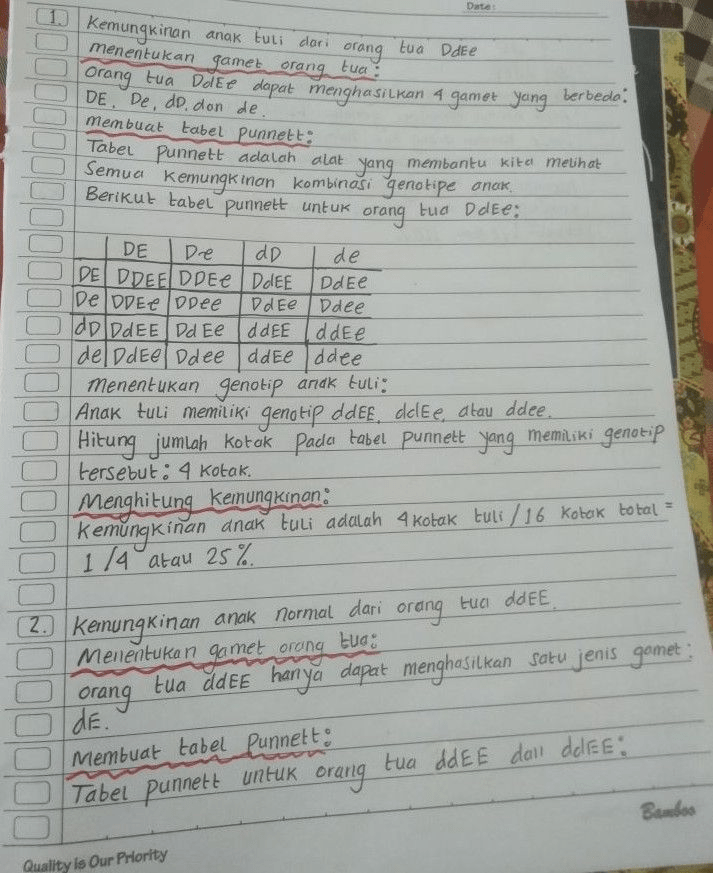 Date:
1. Kemungkinan anak tuli dari orang tua DdEe
menentukan gamet orang tua:
Orang tua DdEe dapat menghasilkan 4 gamet yang berbeda:
DE, De, dD, dan de.
membuat tabel punnett:
Tabel punnett adalah alat yang membantu kita melihat
Semua kemungkinan kombinasi genotipe anak.
Berikut tabel punnett untuk orang tua DdEe:
DE De dD de
DE DDEE DDEe DdEE DdEe
De DDEe DDee DdEe Ddee
dD DdEE DdEe ddEE ddEe
de DdEe Ddee ddEe ddee
menentukan genotip anak tuli:
Anak tuli memiliki genotip ddEE, ddEe, atau ddee.
Hitung jumlah kotak pada tabel punnett yang memiliki genotip
tersebut: 4 kotak.
Menghitung kemungkinan:
Kemungkinan anak tuli adalah 4 kotak tuli / 16 kotak total =
1/4 atau 25%.
2. Kemungkinan anak normal dari orang tua ddEE.
Menentukan gamet orang tua:
orang tua ddEE hanya dapat menghasilkan satu jenis gamet:
dE.
Membuat tabel punnett:
Tabel punnett untuk orang tua ddEE dan ddEE:
Bamboo
Quality is Our Priority